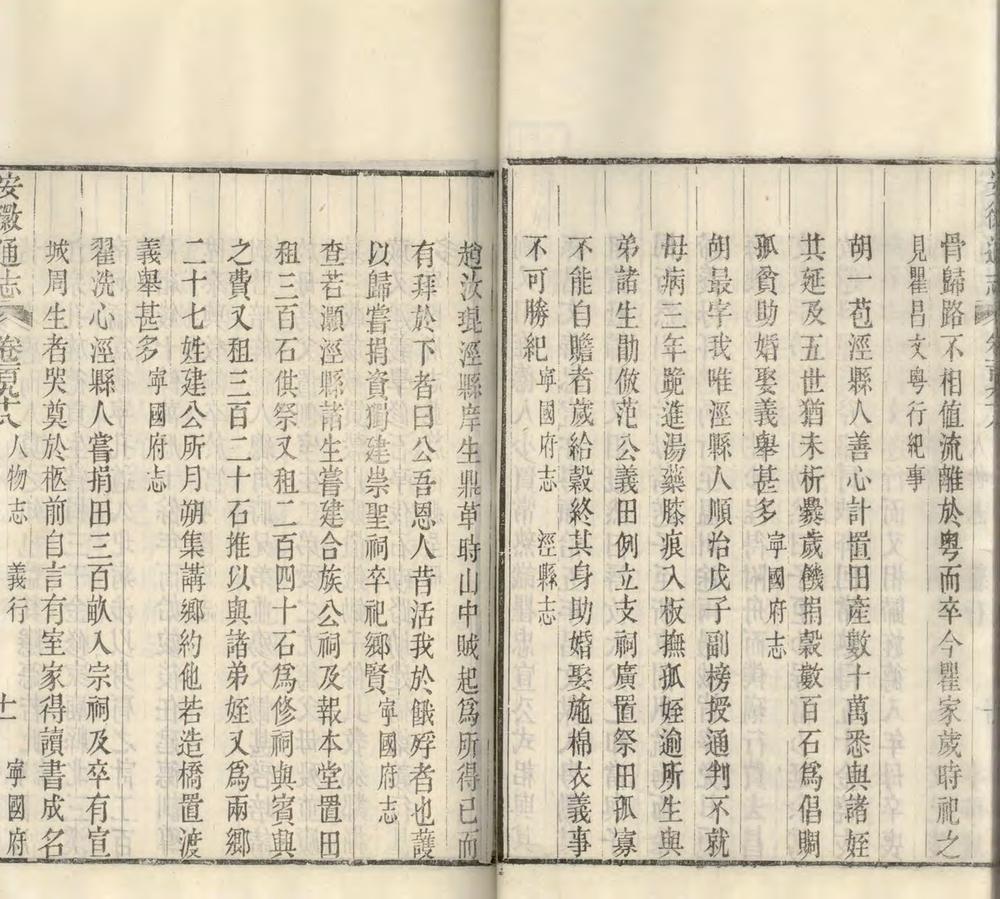 骨歸路不相值流離於粵而卒今瞿家歲時祀之
見瞿昌文粵行紀事
胡一苞涇縣人善心計置田產數十萬悉與諸姪
共延及五世猶未析爨歲饑捐穀數百石爲倡賙
孤貧助婚娶義舉甚多寧國府志
胡最字我唯涇縣人順治戊子副榜授通判不就
母病三年跪進湯藥膝痕入板撫孤姪逾所生與
弟諸生勛倣范公義田例立支祠廣置祭田孤寡
不能自贍者歲給穀終其身助婚娶施棉衣義事
不可勝紀寧國府志 涇縣志
趙汝琨涇縣庠生鼎革時山中賊起爲所得已而
有拜於下者曰公吾恩人昔活我於餓殍者也護
以歸嘗捐資獨建崇聖祠卒祀鄉賢寧國府志
查若灝涇縣諸生嘗建合族公祠及報本堂置田
租三百石供祭又租二百四十石爲修祠與賓興
之費又租三百二十石推以與諸弟姪又爲兩鄉
二十七姓建公所月朔集講鄉約他若造橋置渡
義舉甚多寧國府志
翟洗心涇縣人嘗捐田三百畝入宗祠及卒有宣
城周生者哭奠於柩前自言有室家得讀書成名
安徽通志 卷二百五十八 人物志 義行 十一 寧國府